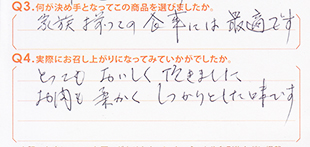 Q3.何が決め手となってこの商品を選びましたか。
家族揃っての食事には最適です
Q4.実際にお召し上がりになってみていかがでしたか。
とっても おいしく頂きました
お肉も柔かく しっかりとした味です